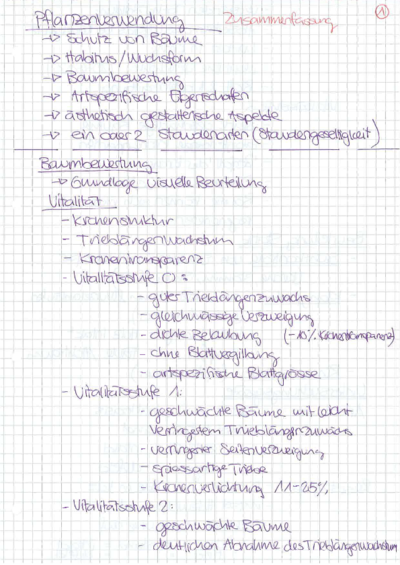 Pflanzenverwendung Zusammenfassung 1
-> Schutz von Bäume
-> Habitus/Wuchsform
-> Baumbewertung
-> Artspezifische Eigenschafen
-> ästhetisch gestalterische Aspekte
-> ein oder 2 Staudenarten (Staudengeselligkeit)
Baumbewertung
-> Grundlage visuelle Beurteilung
Vitalität
- Kronenstruktur
- Trieblängenwachstum
- Kronentransparenz
- Vitalitätsstufe 0:
- guter Trieblängenzuwachs
- gleichmässige Verzweigung
- dichte Belaubung (-10% Kronentransparenz)
- ohne Blattvergilbung
- artspezifische Blattgrösse
- Vitalitätsstufe 1:
- geschwächte Bäume mit leicht
verringertem Trieblängenzuwachs
- verringerter Seitenverzweigung
- spiessartige Triebe
- Kronenverlichtung 11-25%
- Vitalitätsstufe 2:
- geschwächte Bäume
- deutlichen Abnahme des Trieblängenwachstum